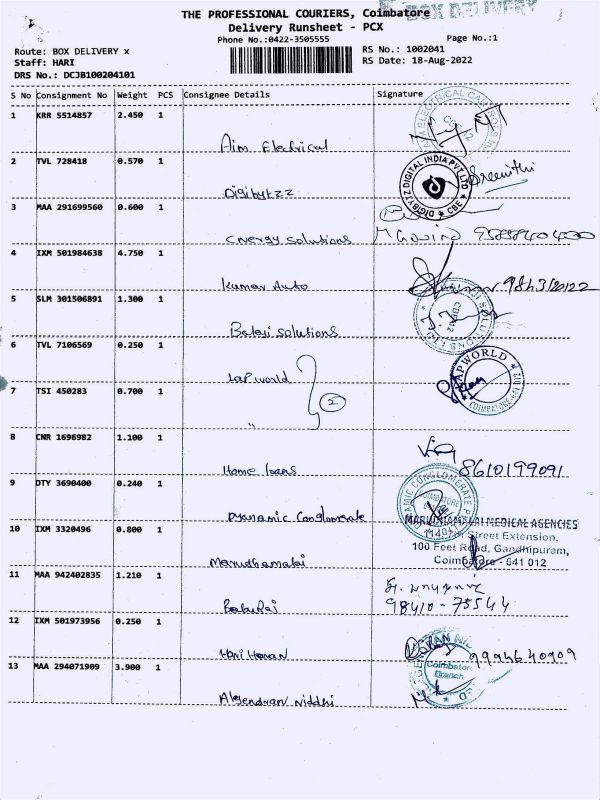 THE PROFESSIONAL COURIERS, Coimbatore
BOX DELIVERY
Delivery Runsheet - PCX
Phone No.:0422-3505555
Page No.:1
Route: BOX DELIVERY x
RS No.: 1002041
Staff: HARI
RS Date: 18-Aug-2022
DRS No.: DCJB100204101
S No Consignment No Weight PCS Consignee Details Signature
1 KRR 5514857 2.450 1
Aim Electrical
2 TVL 728418 0.570 1
DIGIBYTZ DIGITAL INDIA PVT LTD CBE
Sreenithi
Digibytzz
3 MAA 291699560 0.600 1
Cnergy Solutions
4 IXM 501984638 4.750 1
Kumar Auto
5 SLM 301506891 1.300 1
Balaji Solutions
6 TVL 7106569 0.250 1
Lap world
LAPWORLD
COIMBATORE
7 TSI 450283 0.700 1
2
"
8 CNR 1696982 1.100 1
Home loans 8610199091
9 DTY 3690400 0.240 1
DYNAMIC CONGLOMERATE
COIMBATORE
Dynamic Conglomerate
10 IXM 3320496 0.800 1
MEDICAL AGENCIES
Street Extension,
100 Feet Road, Gandhipuram,
Coimbatore - 641 012
Marudhamalai
11 MAA 942402835 1.210 1
98410-75544
12 IXM 501973956 0.250 1
9994640909
13 MAA 294071909 3.900 1
Coimbatore
Branch